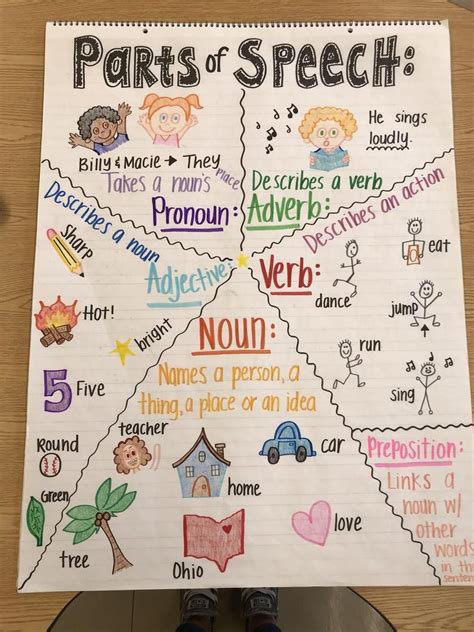 Parts of Speech:
Billy & Macie → They
Takes a noun's place
Pronoun:
He sings
loudly.
Describes a verb
Adverb:
Describes a noun
Adjective:
Sharp
Hot!
bright
5 Five
Round
Green
Describes an action
Verb:
eat
dance
jump
run
sing
Noun:
Names a person, a
thing, a place or an idea
teacher
home
car
tree
Ohio
love
Preposition:
Links a
noun w/
other
words
in the
sentence